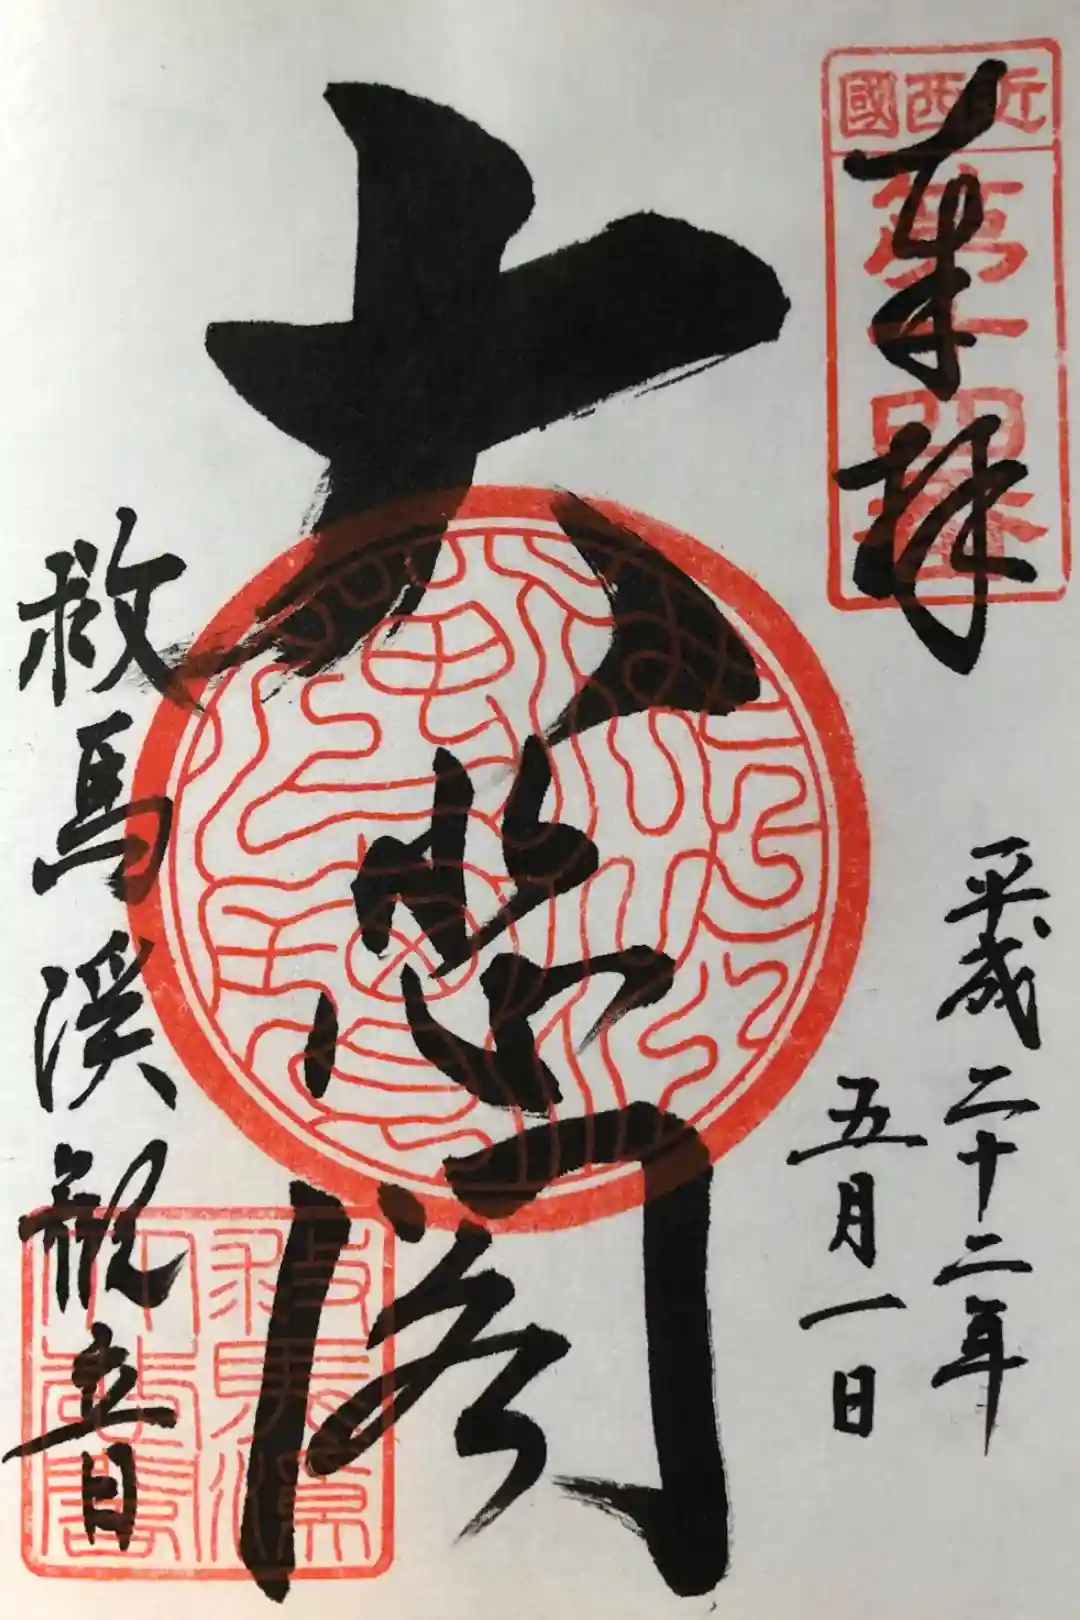 近西國
第一番
奉拝
平成二十二年
五月一日
大悲閣
救馬溪観音